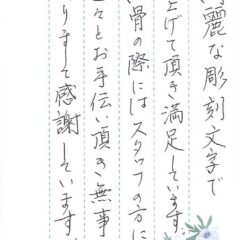 麗な彫刻文字で
上げて頂き満足しています
骨の際にはスタッフの方に
々とお手伝い頂き無事
りまして感謝しています